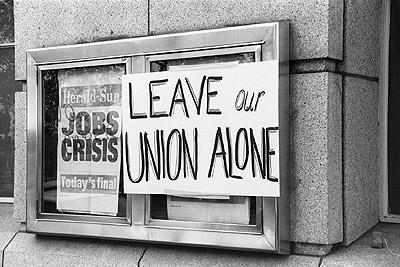 Herald-Sun
JOBS
CRISIS
Today's final
LEAVE our
UNION ALONE